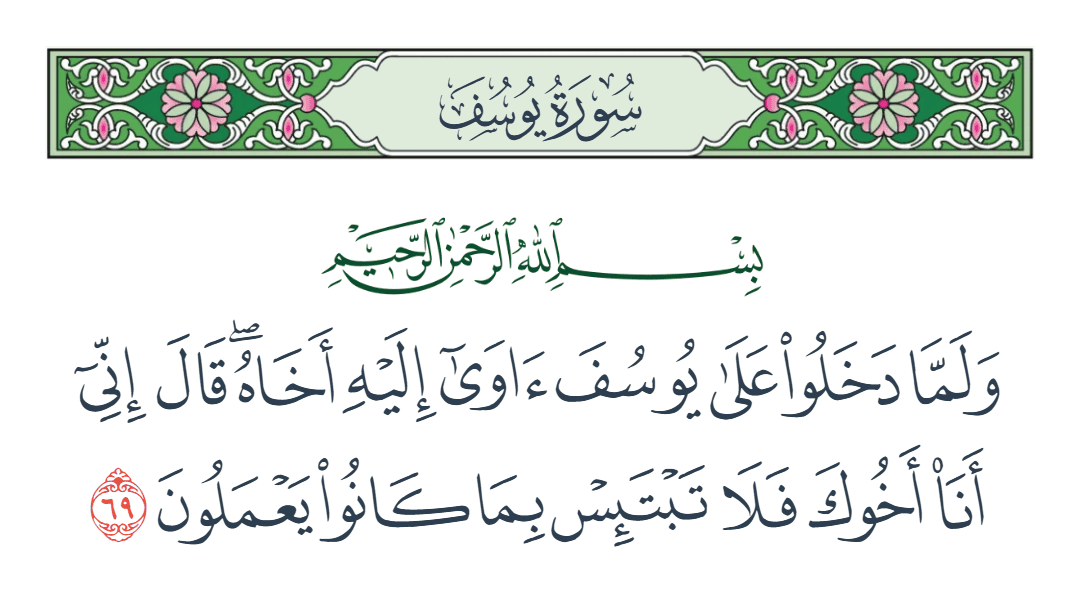 سُورَةُ يُوسُفَ
بِسْمِ ٱللَّهِ ٱلرَّحْمَٰنِ ٱلرَّحِيمِ
وَلَمَّا دَخَلُوا۟ عَلَىٰ يُوسُفَ ءَاوَىٰٓ إِلَيْهِ أَخَاهُ ۖ قَالَ إِنِّىٓ
أَنَا۠ أَخُوكَ فَلَا تَبْتَئِسْ بِمَا كَانُوا۟ يَعْمَلُونَ ٦٩